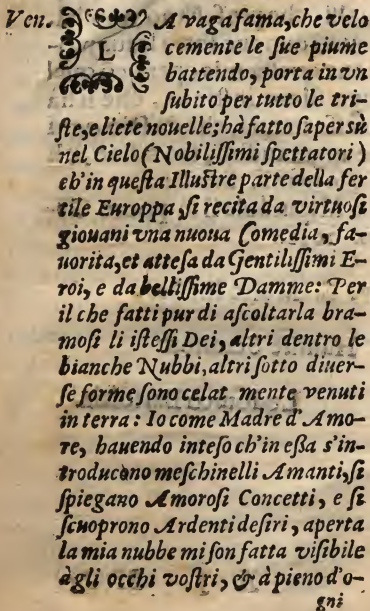 Ven. LA vaga fama, che velo
cemente le sue piume
battendo, porta in vn
subito per tutto le tri-
ste, e liete nouelle; hà fatto saper sù
nel Cielo (Nobilissimi spettatori)
ch'in questa Illustre parte della fer
tile Europpa, si recita da virtuosi
giouani vna nuoua Comedia, fa-
uorita, et attesa da Gentilissimi E-
roi, e da bellissime Damme: Per
il che fatti pur di ascoltarla bra-
mosi li istessi Dei, altri dentro le
bianche Nubbi, altri sotto diuer-
se forme sono celat mente venuti
in terra: Io come Madre d'Amo-
re, hauendo inteso ch'in essa s'in-
troducono meschinelli Amanti, si
spiegano Amorosi Concetti, e si
scuoprono Ardenti desiri, aperta
la mia nubbe mi son fatta visibile
àgli occhi vostri, & à pieno d'o-
gni